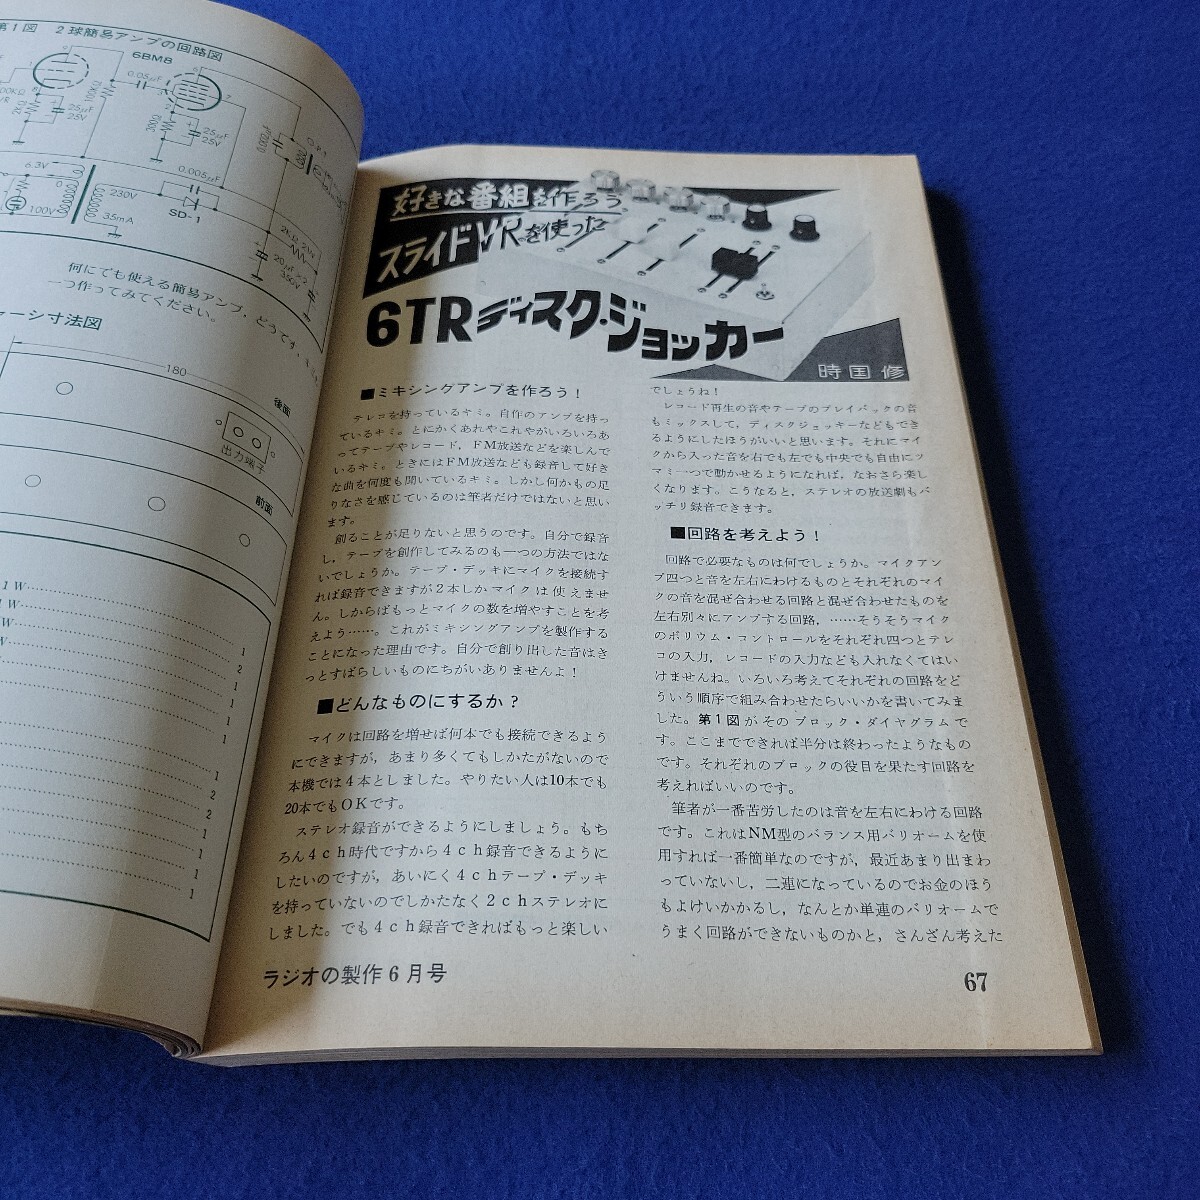 第1図 2球簡易アンプの回路図
6BM8
0.05μF
100KΩ
2KΩ
25μF
25V
300Ω
25μF
25V
O.P.T
6.3V
0
100V
230V
35mA
0.005μF
SD-1
2KΩ2W
20μF×2
350V
何にでも使える簡易アンプ，どうです，キミも
一つ作ってみてください。
ャーシ寸法図
180
後面
出力端子
前面
好きな番組を作ろう
スライドVRを使った
6TRディスク・ジョッカー
時国 修
■ミキシングアンプを作ろう！
テレコを持っているキミ。自作のアンプを持っ
ているキミ。とにかくあれやこれやがいろいろあ
ってテープやレコード，FM放送などを楽しんで
いるキミ。ときにはFM放送なども録音して好き
な曲を何度も聞いているキミ。しかし何かもの足
りなさを感じているのは筆者だけではないと思い
ます。
創ることが足りないと思うのです。自分で録音
し，テープを創作してみるのも一つの方法ではな
いでしょうか。テープ・デッキにマイクを接続す
れば録音できますが2本しかマイクは使えませ
ん。しからばもっとマイクの数を増やすことを考
えよう……。これがミキシングアンプを製作する
ことになった理由です。自分で創り出した音はき
っとすばらしいものにちがいありませんよ！
■どんなものにするか？
マイクは回路を増せば何本でも接続できるよう
にできますが，あまり多くてもしかたがないので
本機では4本としました。やりたい人は10本でも
20本でもOKです。
ステレオ録音ができるようにしましょう。もち
ろん4ch時代ですから4ch録音できるように
したいのですが，あいにく4chテープ・デッキ
を持っていないのでしかたなく2chステレオに
しました。でも4ch録音できればもっと楽しい
でしょうね！
レコード再生の音やテープのプレイバックの音
もミックスして，ディスクジョッキーなどもでき
るようにしたほうがいいと思います。それにマイ
クから入った音を右でも左でも中央でも自由にツ
マミ一つで動かせるようになれば，なおさら楽し
くなります。こうなると，ステレオの放送劇もバ
ッチリ録音できます。
■回路を考えよう！
回路で必要なものは何でしょうか。マイクアン
プ四つと音を左右にわけるものとそれぞれのマイ
クの音を混ぜ合わせる回路と混ぜ合わせたものを
左右別々にアンプする回路，……そうそうマイク
のボリウム・コントロールをそれぞれ四つとテレ
コの入力，レコードの入力なども入れなくてはい
けませんね。いろいろ考えてそれぞれの回路をど
ういう順序で組み合わせたらいいかを書いてみま
した。第1図がそのブロック・ダイヤグラムで
す。ここまでできれば半分は終わったようなもの
です。それぞれのブロックの役目を果たす回路を
考えればいいのです。
筆者が一番苦労したのは音を左右にわける回路
です。これはNM型のバランス用バリオームを使
用すれば一番簡単なのですが，最近あまり出まわ
っていないし，二連になっているのでお金のほう
もよけいかかるし，なんとか単連のバリオームで
うまく回路ができないものかと，さんざん考えた
ラジオの製作6月号
67